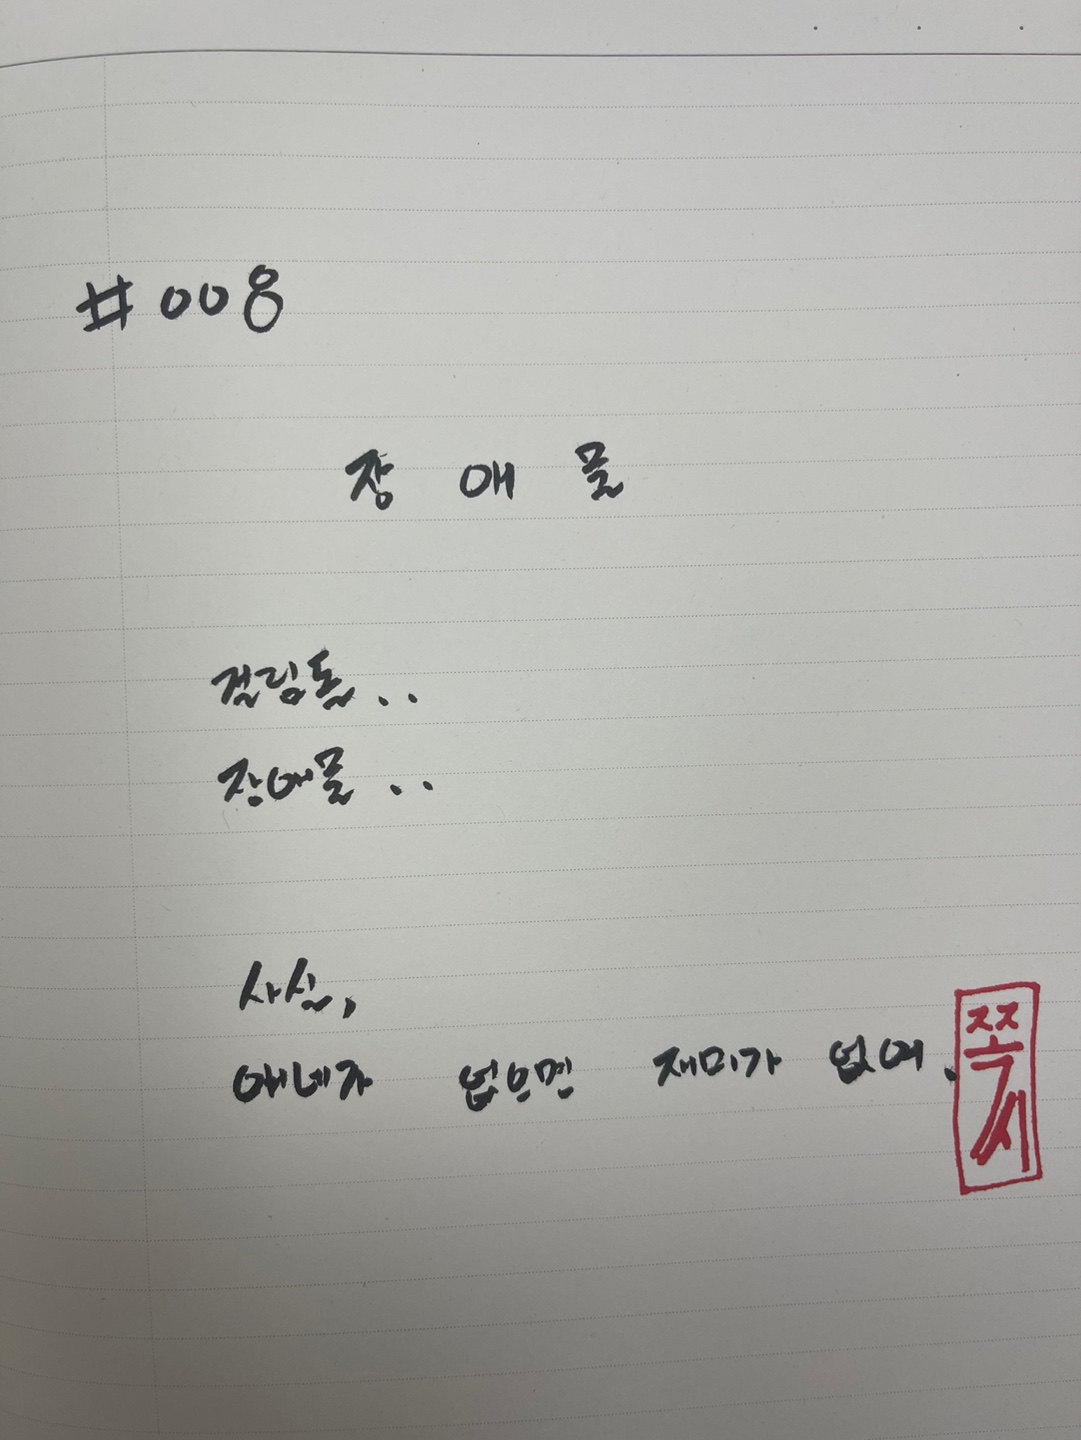 #008
장 애 물
걸림돌..
장애물..
사실,
얘네가 없으면 재미가 없어.
쪽시